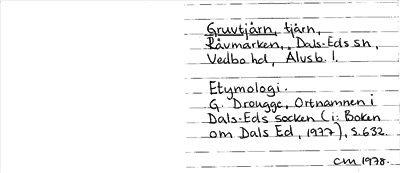 Gruvtjärn, tjärn,
Råvmarken, Dals-Eds sn,
Vedbo hd, Älvsb. l.
Etymologi.
G. Drougge, Ortnamnen i
Dals-Eds socken (i: Boken
om Dals Ed, 1977), s. 632.
CM 1978.